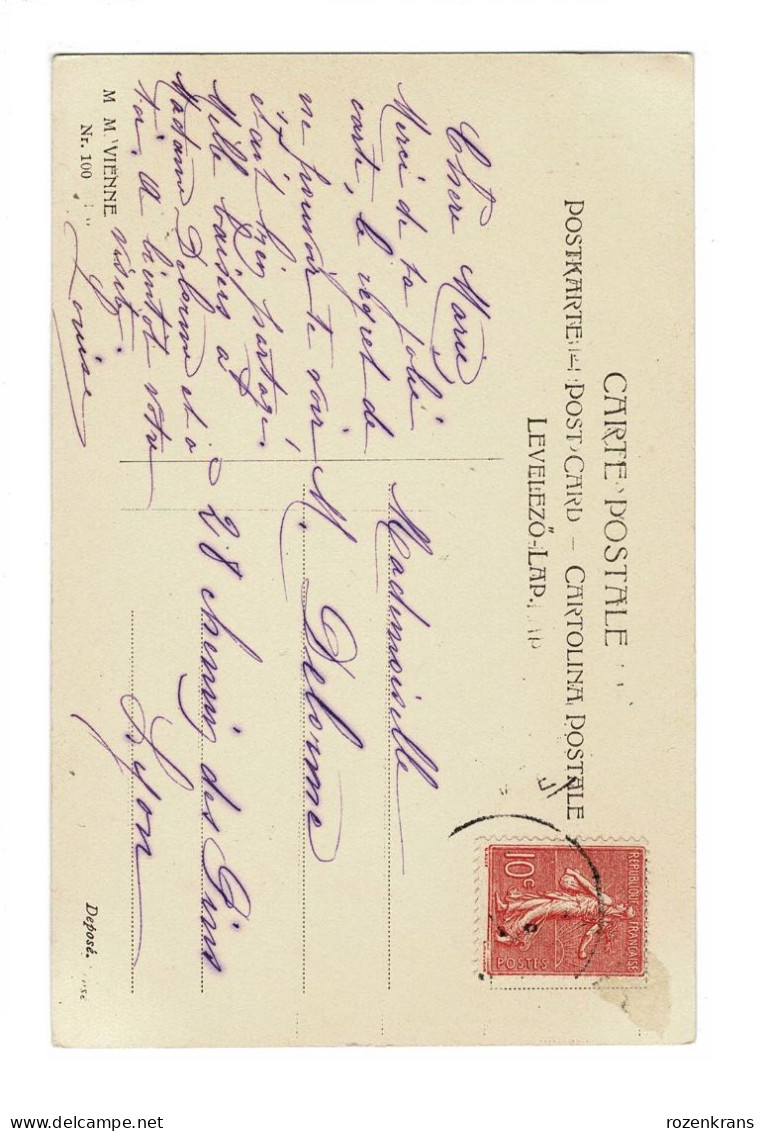 CARTE POSTALE
POSTKARTE – POST CARD – CARTOLINA POSTALE
LEVELEZŐ-LAP.
Chère Marie
Merci de ta jolie
carte, le regret de
ne pouvoir te voir
était bien partagé.
Mille baisers à
Madame Delorme et à
toi. A bientôt votre
visite.
Louise
M. M. VIENNE
Nr. 100
Mademoiselle
M. Delorme
28 chemin des Pins
Lyon
REPUBLIQUE FRANÇAISE
10c
POSTES
Deposé.
rozenkrans